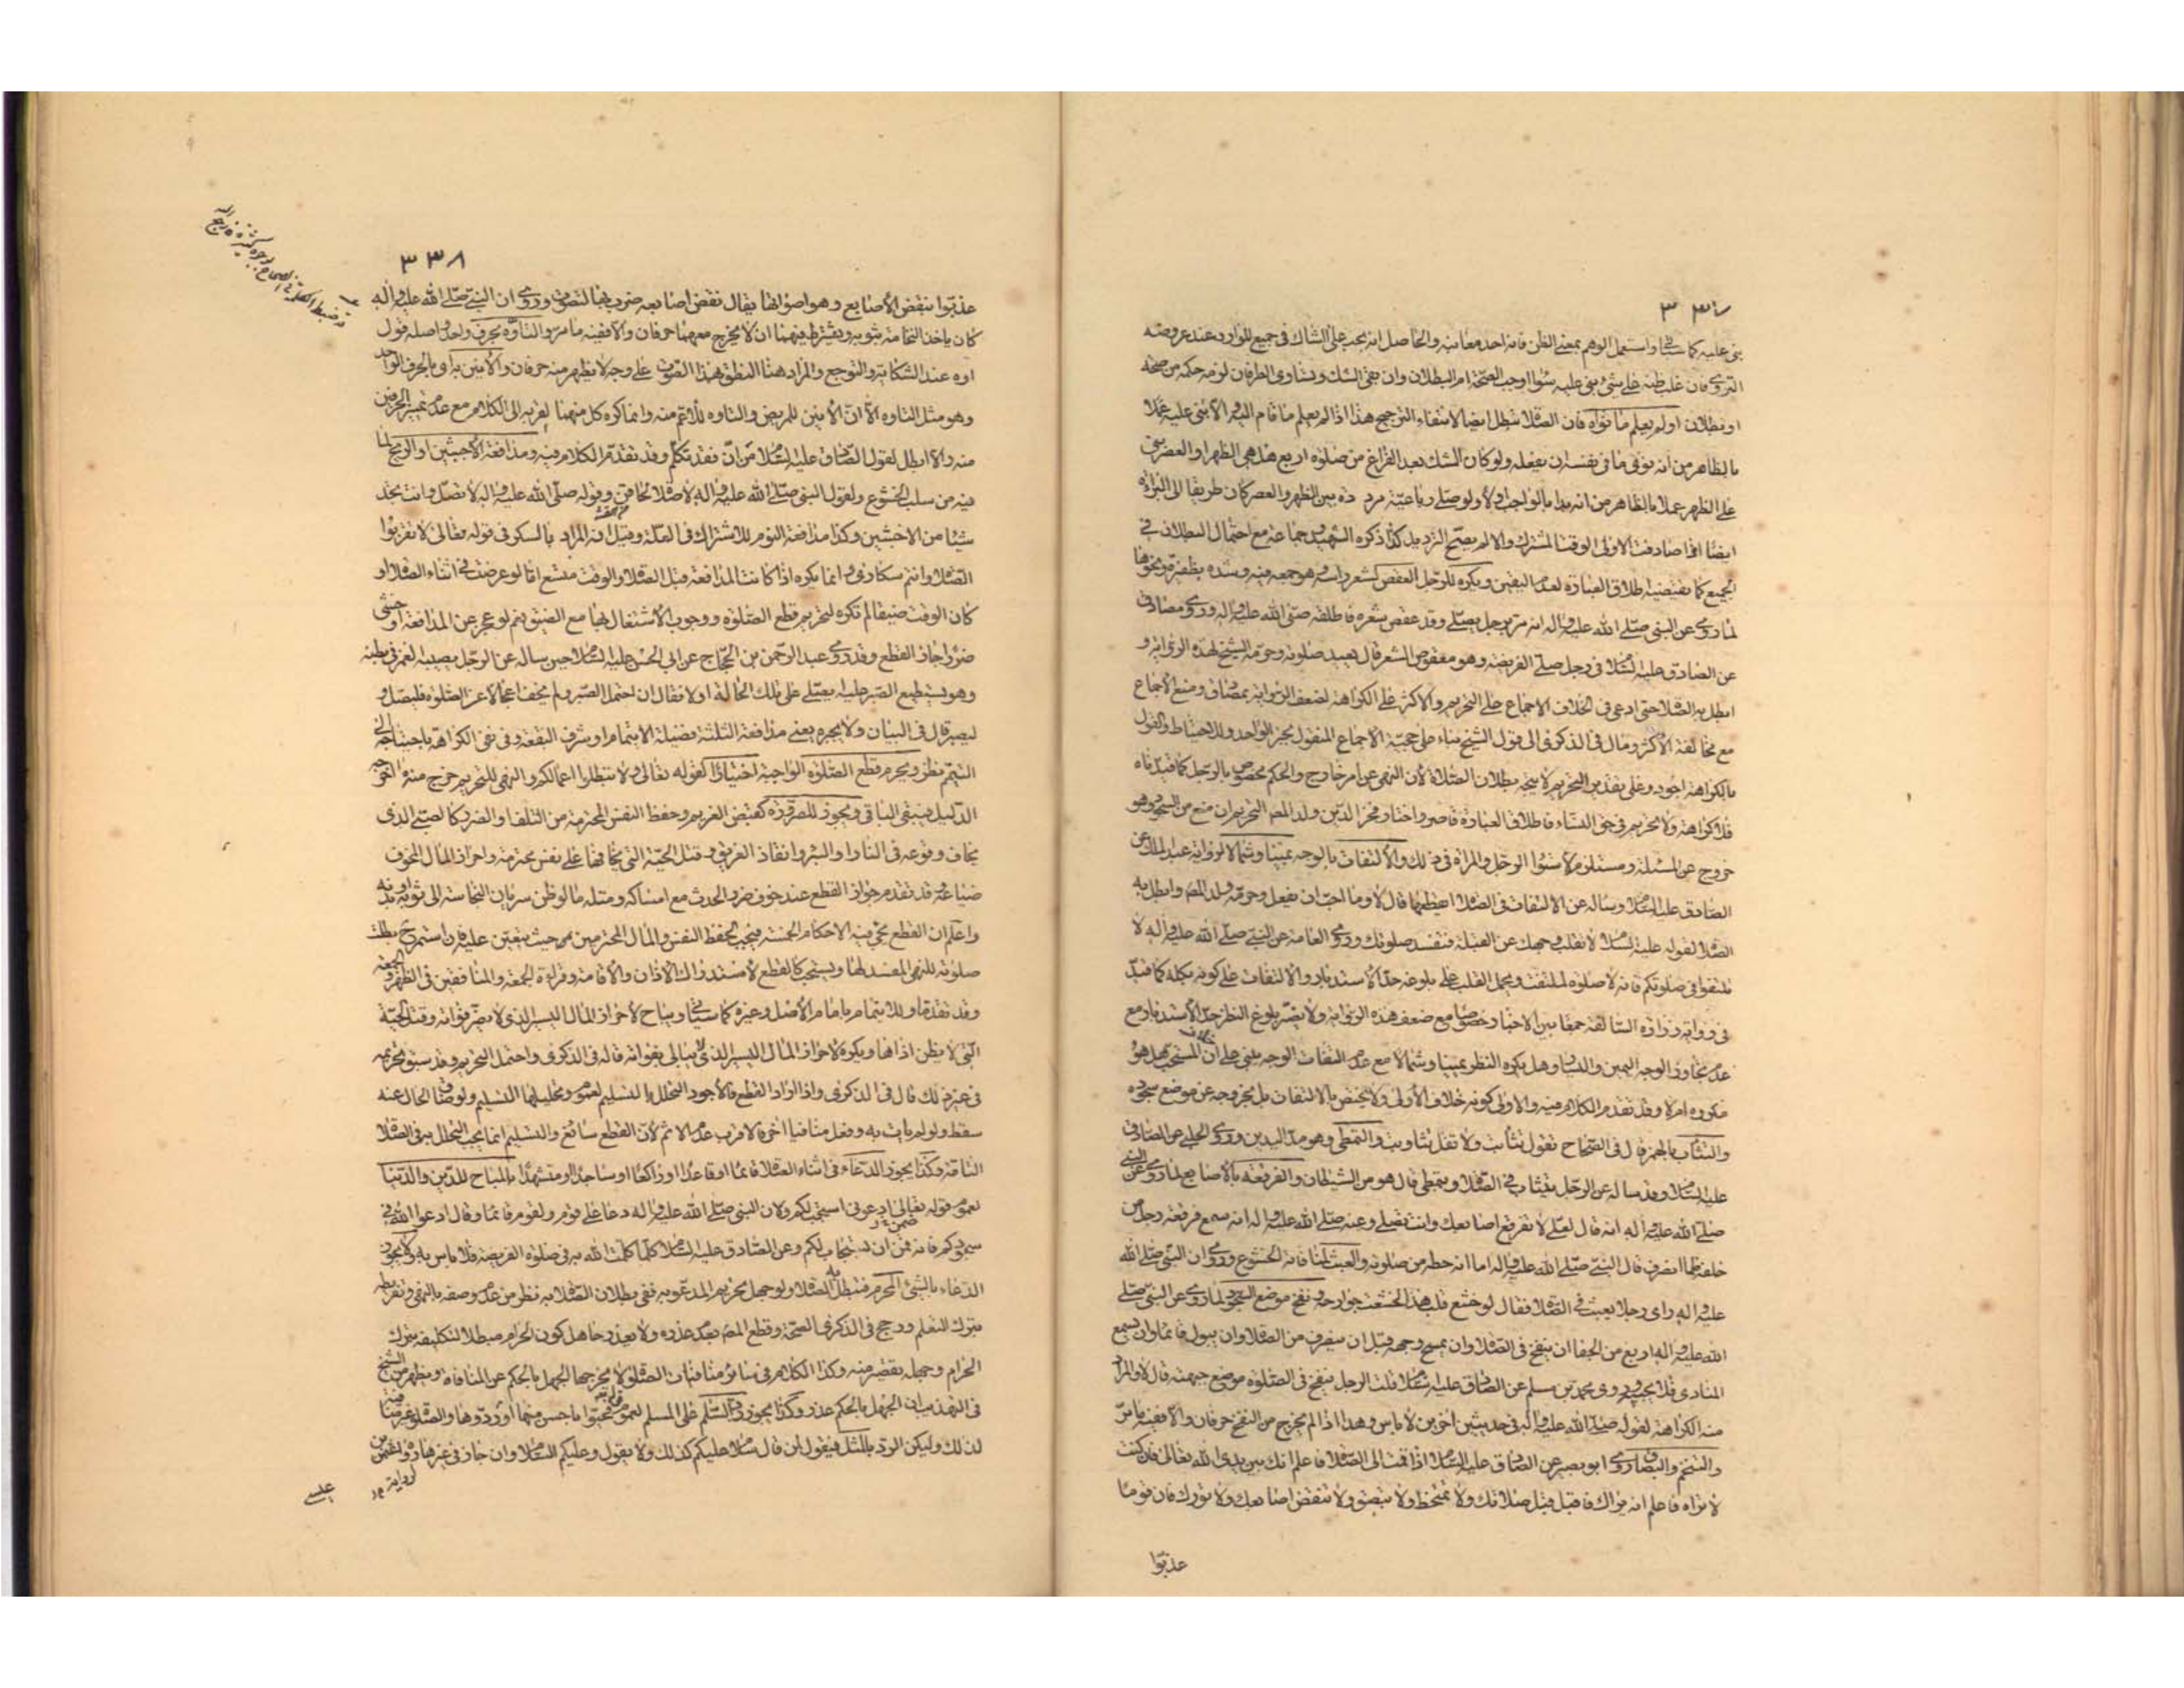 ٣٣٧
بنى عليه كما سيأتى واستعمل الوهم بمعنى الظن فانه احد معانيه والحاصل انه يجب على الشاك فى جميع الموارد عند عروضه
التروى فان غلب ظنه على شئ بنى عليه سواء اوجب الصحة ام البطلان وان بقى الشك وتساوى الطرفان لزمه حكمه من صحة
او بطلان ولو لم يعلم ما نواه فان الصلاة تبطل ايضا لانتفاء الترجيح هذا اذا لم يعلم ما قام اليه والا بنى عليه عملا
بالظاهر من انه نوى ما فى نفسه ان يفعله ولو كان الشك بعد الفراغ من صلوة اربع هل هى الظهر او العصر بنى
على الظهر عملا بالظاهر من انه بدا بالواجب اولا ولو صلى رباعية مرددة بين الظهر والعصر كان طريقا الى البراءة
ايضا اذا صادفت الاولى الوقت المشترك والا لم يصح الترديد كذا ذكره الشهيد وجماعة مع احتمال البطلان فى
الجميع كما يقتضيه اطلاق العبارة لعدم اليقين ويكره للرجل العقص لشعر راسه وهو جمعه فيه وشده بظفره ونحوها
لما روى عن النبى صلى الله عليه واله انه مر برجل يصلى وقد عقص شعره فاطلقه صلى الله عليه واله وروى مصادف
عن الصادق عليه السلام فى رجل صلى الفريضة وهو معقوص الشعر قال يعيد صلوته وحرمه الشيخ لهذه الرواية و
ابطل به الصلاة حتى ادعى فى الخلاف الاجماع على التحريم والاكثر على الكراهة لضعف الرواية بمصادف ومنع الاجماع
مع مخالفة الاكثر ومال فى الذكرى الى قول الشيخ بناء على حجية الاجماع المنقول بخبر الواحد وللاحتياط والقول
بالكراهة اجود وعلى تقدير التحريم لا يتجه بطلان الصلاة لان النهى عن امر خارج والحكم مخصوص بالرجل كما قيدناه
فلا كراهة ولا تحريم فى حق النساء فاطلاق العبارة قاصر واختار فخر الدين ولد المص التحريم ان منع من السجود وهو
خروج عن المسئلة ومستلزم لاستواء الرجل والمراة فى ذلك والالتفات بالوجه يمينا وشمالا لرواية عبد الملك عن
الصادق عليه السلام وساله عن الالتفات فى الصلاة ايقطعها قال لا وما احب ان يفعل وحرمه ولد المص وابطل به
الصلاة لقوله عليه السلام لا تقلب وجهك عن القبلة فتفسد صلوتك وروى العامة عن النبى صلى الله عليه واله لا
تلتفتوا فى صلوتكم فانه لا صلوة لملتفت ويحمل القلب على بلوغه حد الاستدبار والالتفات على كونه بكله كما قيد
فى رواية زرارة السالفة جمعا بين الاخبار وخصوصا مع ضعف هذه الرواية ولا يضر بلوغ النظر حد الاستدبار مع
عدم تجاوز الوجه اليمين واليسار وهل يكره النظر يمينا وشمالا مع عدم التفات الوجه يبنى على ان خلاف المستحب هل هو
مكروه ام لا وقد تقدم الكلام فيه والاولى كونه خلاف الاولى ولا يختص بالالتفات بل بخروجه عن موضع سجوده
والتثاب بالهمز قال فى الصحاح تقول تثأبت ولا تقل تثاوبت والتمطى وهو مد اليدين وروى الحلبى عن الصادق
عليه السلام وقد ساله عن الرجل يتثاب فى الصلاة ويتمطى قال هو من الشيطان والفرقعة بالاصابع لما روى عن النبى
صلى الله عليه واله انه قال لعلى لا تفرقع اصابعك وانت تصلى وعنه صلى الله عليه واله انه سمع فرقعة رجل من
خلفه فلما انصرف قال النبى صلى الله عليه واله اما انه حظه من صلوته والعبث لمنافاته الخشوع وروى ان النبى صلى الله
عليه واله راى رجلا يعبث فى الصلاة فقال لو خشع قلب هذا لخشعت جوارحه ونفخ موضع السجود لما روى عن النبى صلى
الله عليه واله اربع من الجفا ان ينفخ فى الصلاة وان يمسح وجهه قبل ان ينصرف من الصلاة وان يبول قائما وان يسمع
المنادى فلا يجيبه وروى محمد بن مسلم عن الصادق عليه السلام قلت الرجل ينفخ فى الصلوة موضع جبهته قال لا والمراد
منه الكراهة لقوله صلى الله عليه واله فى حديثين اخرين لا باس وهذا اذا لم يخرج من النفخ حرفان والا ففيه ما مر
والتنخم والبصاق روى ابو بصير عن الصادق عليه السلام اذا قمت الى الصلاة فاعلم انك بين يدى الله تعالى فان كنت
لا تراه فاعلم انه يراك فاقبل قبل صلاتك ولا تمتخط ولا تبصق ولا تنقض اصابعك ولا تورك فان قوما
عذبوا
٣٣٨
عذبوا بنقض الاصابع وهو اصواتها يقال نقض اصابعه ضرب بها لتصوت وروى ان النبى صلى الله عليه واله
كان ياخذ النخامة بثوبه ويشترط فيهما ان لا يخرج معهما حرفان والا ففيه ما مر والتاوه بحرف واحد واصله قول
اوه عند الشكاية والتوجع والمراد هنا النطق بهذا الصوت على وجه لا يظهر منه حرفان والانين به او بالحرف الواحد
وهو مثل التاوه الا ان الانين للمريض والتاوه للاعم منه وانما كره كل منهما لقربه الى الكلام مع عدم تميز الحرفين
منه والا ابطل لقول الصادق عليه السلام من ان فقد تكلم وقد تقدم الكلام فيه ومدافعة الاخبثين او الريح لما
فيه من سلب الخشوع ولقول النبى صلى الله عليه واله لا صلاة لحاقن وقوله صلى الله عليه واله لا تصل وانت تجد
شيئا من الاخبثين وكذا مدافعة النوم للاشتراك فى العلة وقيل انه المراد بالسكر فى قوله تعالى لا تقربوا
الصلاة وانتم سكارى وانما يكره اذا كانت المدافعة قبل الصلاة والوقت متسع اما لو عرضت فى اثناء الصلاة او
كان الوقت ضيقا لم تكره لتحريم قطع الصلوة ووجوب الاشتغال بها مع الضيق نعم لو عجز عن المدافعة او خشى
ضررا جاز القطع وقد روى عبد الرحمن بن الحجاج عن ابى الحسن عليه السلام حين ساله عن الرجل يصيبه الغمز فى بطنه
وهو يستطيع الصبر عليه ايصلى على تلك الحالة او لا فقال ان احتمل الصبر ولم يخف اعجالا عن الصلوة فليصل و
ليصبر قال فى البيان ولا يجبره يعنى مدافعة الثلثة فضيلة الايتمام او شرف البقعة وفى نفى الكراهة باحتياجه الى
التيمم نظر ويحرم قطع الصلوة الواجبة اختيارا لقوله تعالى ولا تبطلوا اعمالكم والنهى للتحريم خرج منه ما اخرجه
الدليل فيبقى الباقى ويجوز للضرورة كقبض الغريم وحفظ النفس المحترمة من التلف او الضرر كالصبى الذى
يخاف وقوعه فى النار او البئر وانقاذ الغريق وقتل الحية التى يخافها على نفس محترمة واحراز المال المخوف
ضياعه وقد تقدم جواز القطع عند خوف ضرر الحدث مع امساكه ومثله ما لو ظن سريان النجاسة الى ثوبه او بدنه
واعلم ان القطع يجئ فيه الاحكام الخمسة فيجب لحفظ النفس والمال المحترمين من حيث يتعين عليه فان استمر ح بطلت
صلوته للنهى المفسد لها ويستحب كالقطع لاستدراك الاذان والاقامة وقراءة الجمعة والمنافقين فى الظهر والجمعة
وقد تقدما وللايتمام بامام الاصل وغيره كما سياتى ويباح لاحراز المال اليسير الذى لا يضر فواته وقتل الحية
التى لا يظن اذاها ويكره لاحراز المال اليسير الذى لا يبالى بفواته قاله فى الذكرى واحتمل التحريم وقد سبق تحريمه
فى غير ذلك قال فى الذكرى واذا اراد القطع فالاجود التحلل بالتسليم لعموم وتحليلها التسليم ولو ضاق الحال عنه
سقط ولو لم يات به وفعل منافيا اخر فالاقرب عدم الاثم لان القطع سائغ والتسليم انما يجب التحلل به فى الصلاة
التامة وكذا يجوز الدعاء فى اثناء الصلاة قائما او قاعدا او راكعا او ساجدا او متشهدا بالمباح للدين والدنيا
لعموم قوله تعالى ادعونى استجب لكم ولان النبى صلى الله عليه واله دعا على قوم ولقوم قائما وقال ادعوا الله فى
سجودكم فانه قمن ان يستجاب لكم وعن الصادق عليه السلام كلما كلمت الله به فى صلوة الفريضة فلا باس به ولا يجوز
الدعاء بالشئ المحرم فتبطل به الصلاة ولو جهل تحريم المدعو به ففى بطلان الصلاة به نظر من عدم وصفه بالنهى وتفريطه
بترك التعلم ورجح فى الذكرى الصحة وقطع المص بعدم عذره ولا يعذر جاهل كون الحرام مبطلا لتكليفه بترك
الحرام وجهله تقصير منه وكذا الكلام فى سائر منافيات الصلوة لا يخرجها الجهل بالحكم عن المنافاة ويظهر من الشيخ
فى التهذيب ان الجهل بالحكم عذر وكذا يجوز رد السلام على المسلم لعموم قوله تعالى فحيوا باحسن منها او ردوها والصلوة غير منافية
لذلك وليكن الرد بالمثل فيقول لمن قال سلام عليكم كذلك ولا يقول وعليكم السلام وان جاز فى غيرها
لرواية
عليه